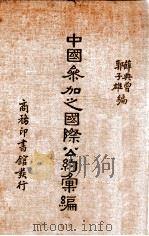 薛典曾
郭子雄
編
中國參加之國際公約彙編
商務印書館發行
mtoou.info